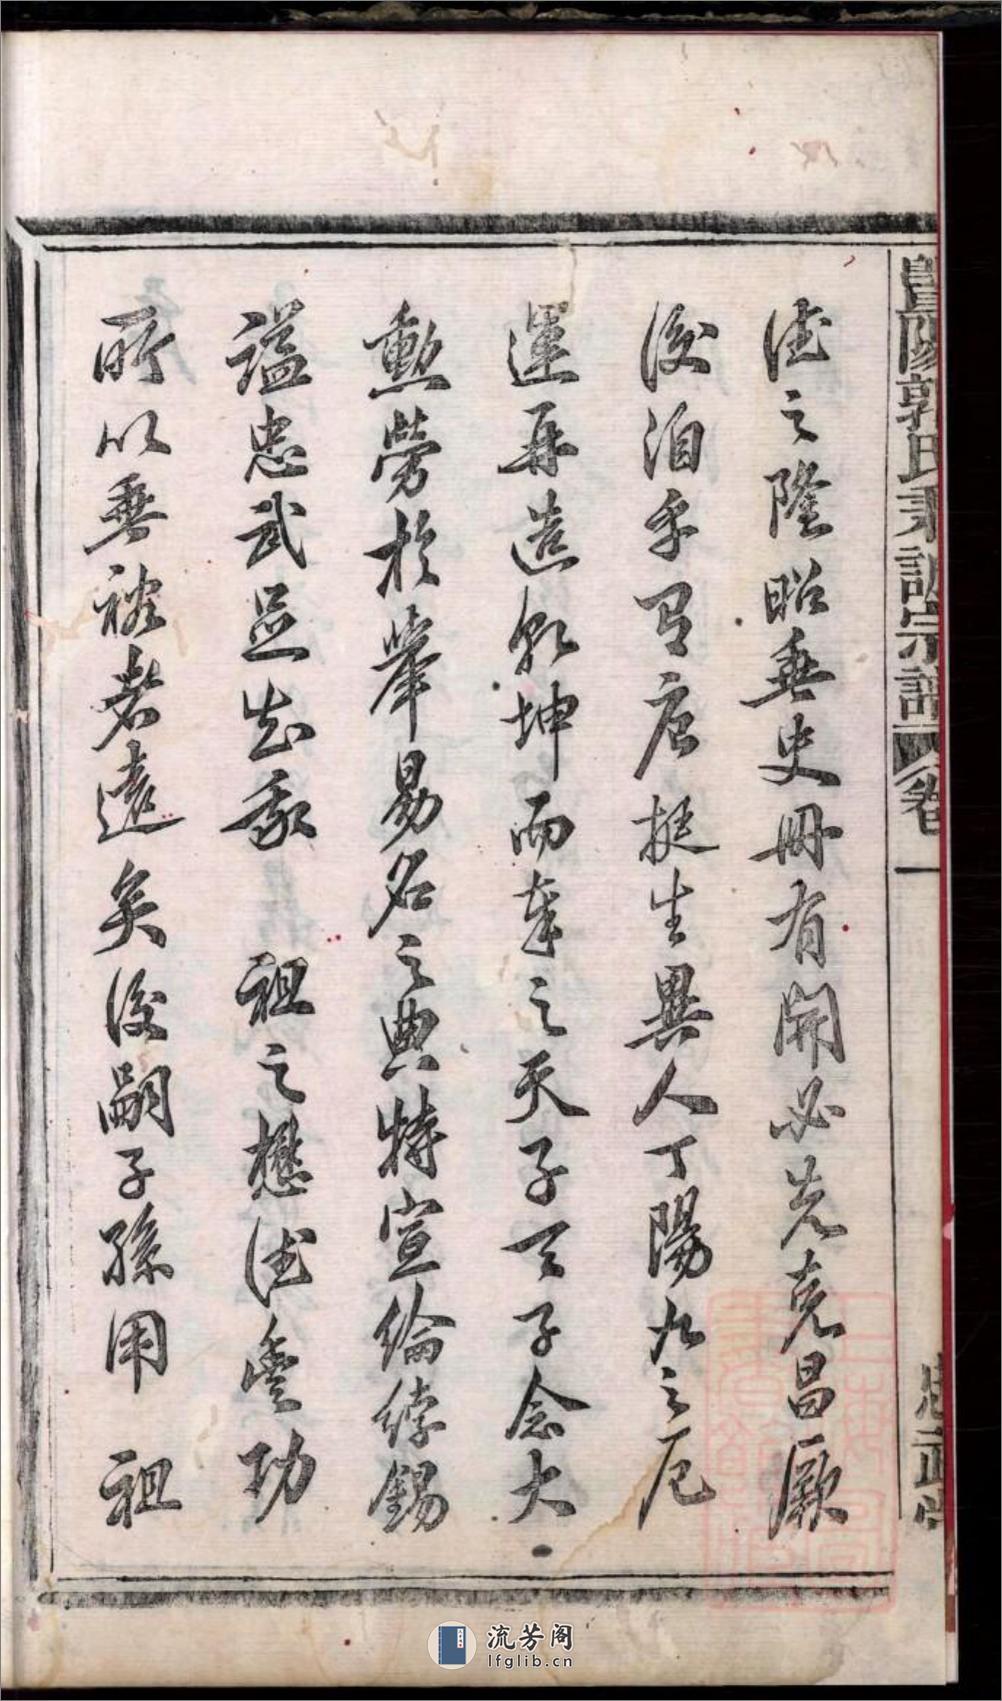 暨陽郭氏秉訓宗譜 卷一
忠武堂
德之隆昭垂史冊有開必先克昌厥
後洎乎有唐挺生異人丁陽九之厄
運再造乾坤而奉之天子天子念大
勳勞於肇易名之典特宣綸綍錫
謚忠武足知我 祖之懋德豐功
所以垂裕者遠矣後嗣子孫用 祖
流芳阁
lfglib.cn